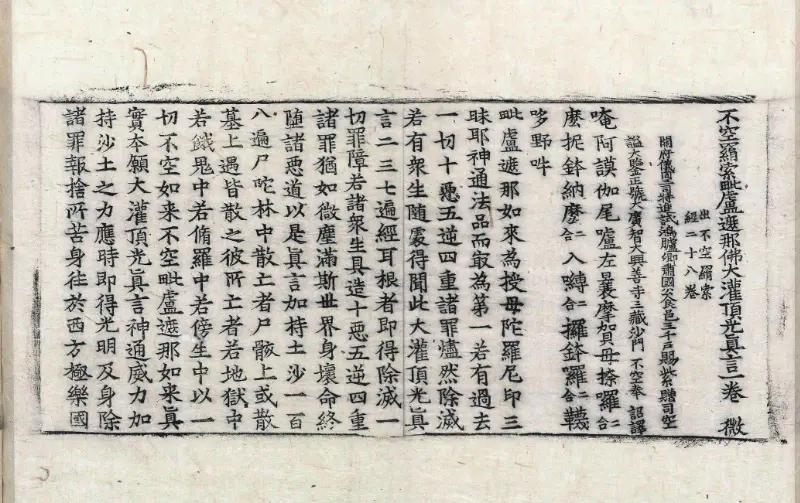 不空羂索毗盧遮那佛大灌頂光真言一卷 微
出不空羂索
經二十八卷
開府儀同三司特進試鴻臚卿肅國公食邑三千戶賜紫贈司空
謚大鑒正號大廣智大興善寺三藏沙門 不空奉 詔譯
唵阿謨伽尾嚧左曩摩賀母捺囉二合
麽抳鉢納麽二合入嚩二合攞鉢囉二合韈
哆野吽
毗盧遮那如來為授母陀羅尼印三
昧耶神通法品而最為第一若有過去
一切十惡五逆四重諸罪燼然除滅
若有衆生隨處得聞此大灌頂光真
言二三七遍經耳根者即得除滅一
切罪障若諸衆生具造十惡五逆四重
諸罪猶如微塵滿斯世界身壞命終
墮諸惡道以是真言加持土沙一百
八遍尸陀林中散亡者尸骸上或散
墓上遇皆散之彼所亡者若地獄中
若餓鬼中若脩羅中若傍生中以一
切不空如來不空毗盧遮那如來真
實本願大灌頂光真言神通威力加
持沙土之力應時即得光明及身除
諸罪報捨所苦身往於西方極樂國